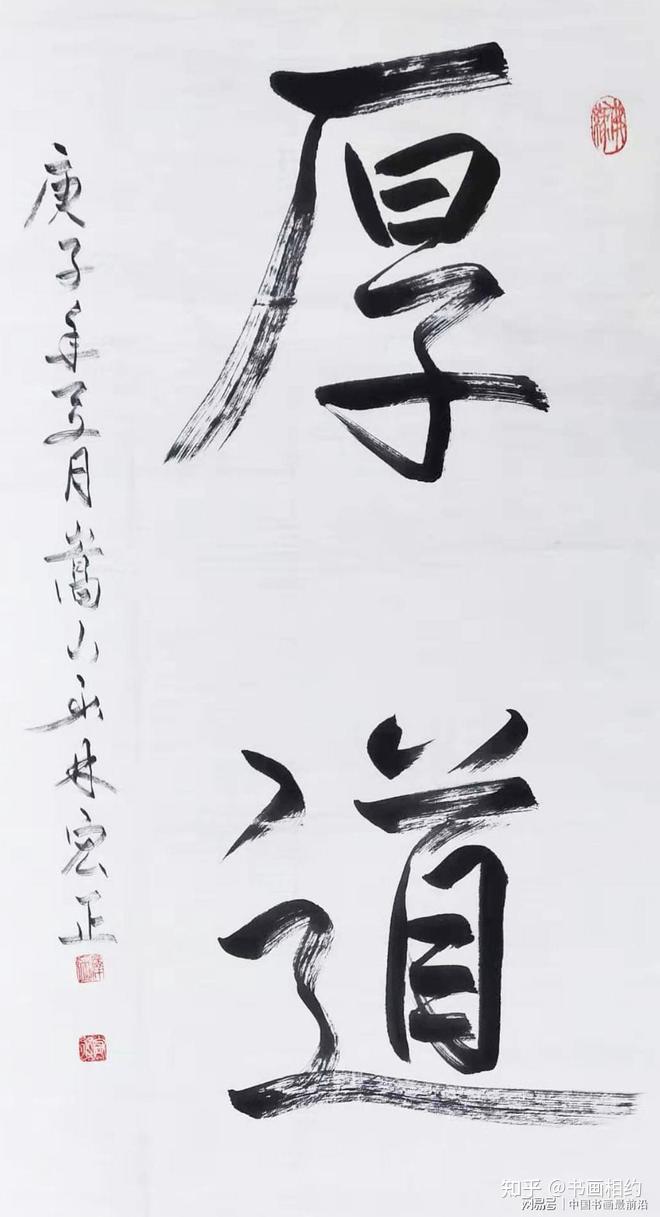 厚道
庚子年夏月嵩山永林宏正
知乎 @书画相约
网易号 | 中国书画最前沿